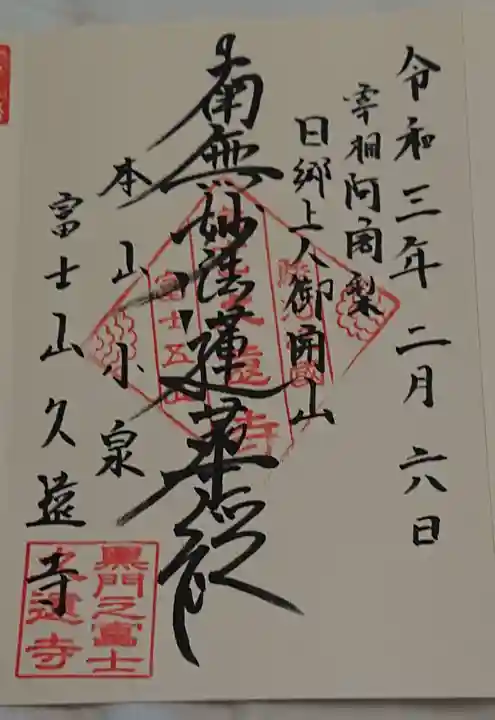 令和三年二月六日
宰相阿闍梨
日郷上人御開山
南無妙法蓮華経
本山小泉
富士山久遠寺
富士五山
久遠寺
黒門之富士
久遠寺